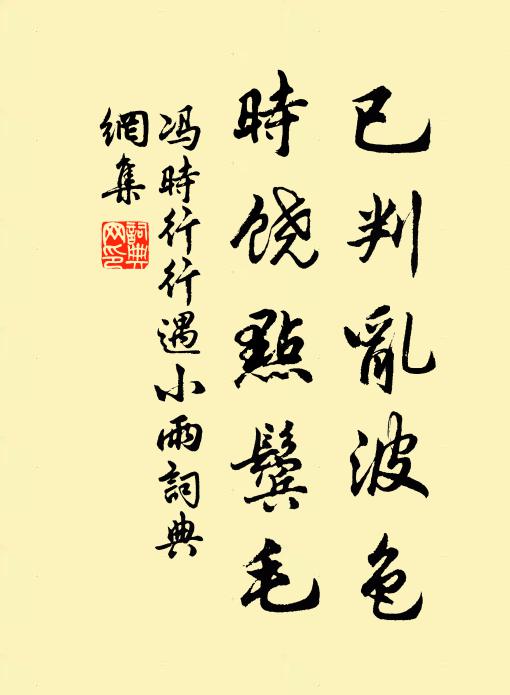 已判亂波色
時饶點鬓毛
冯時行行遇小雨詞典
網集
詞典
网印